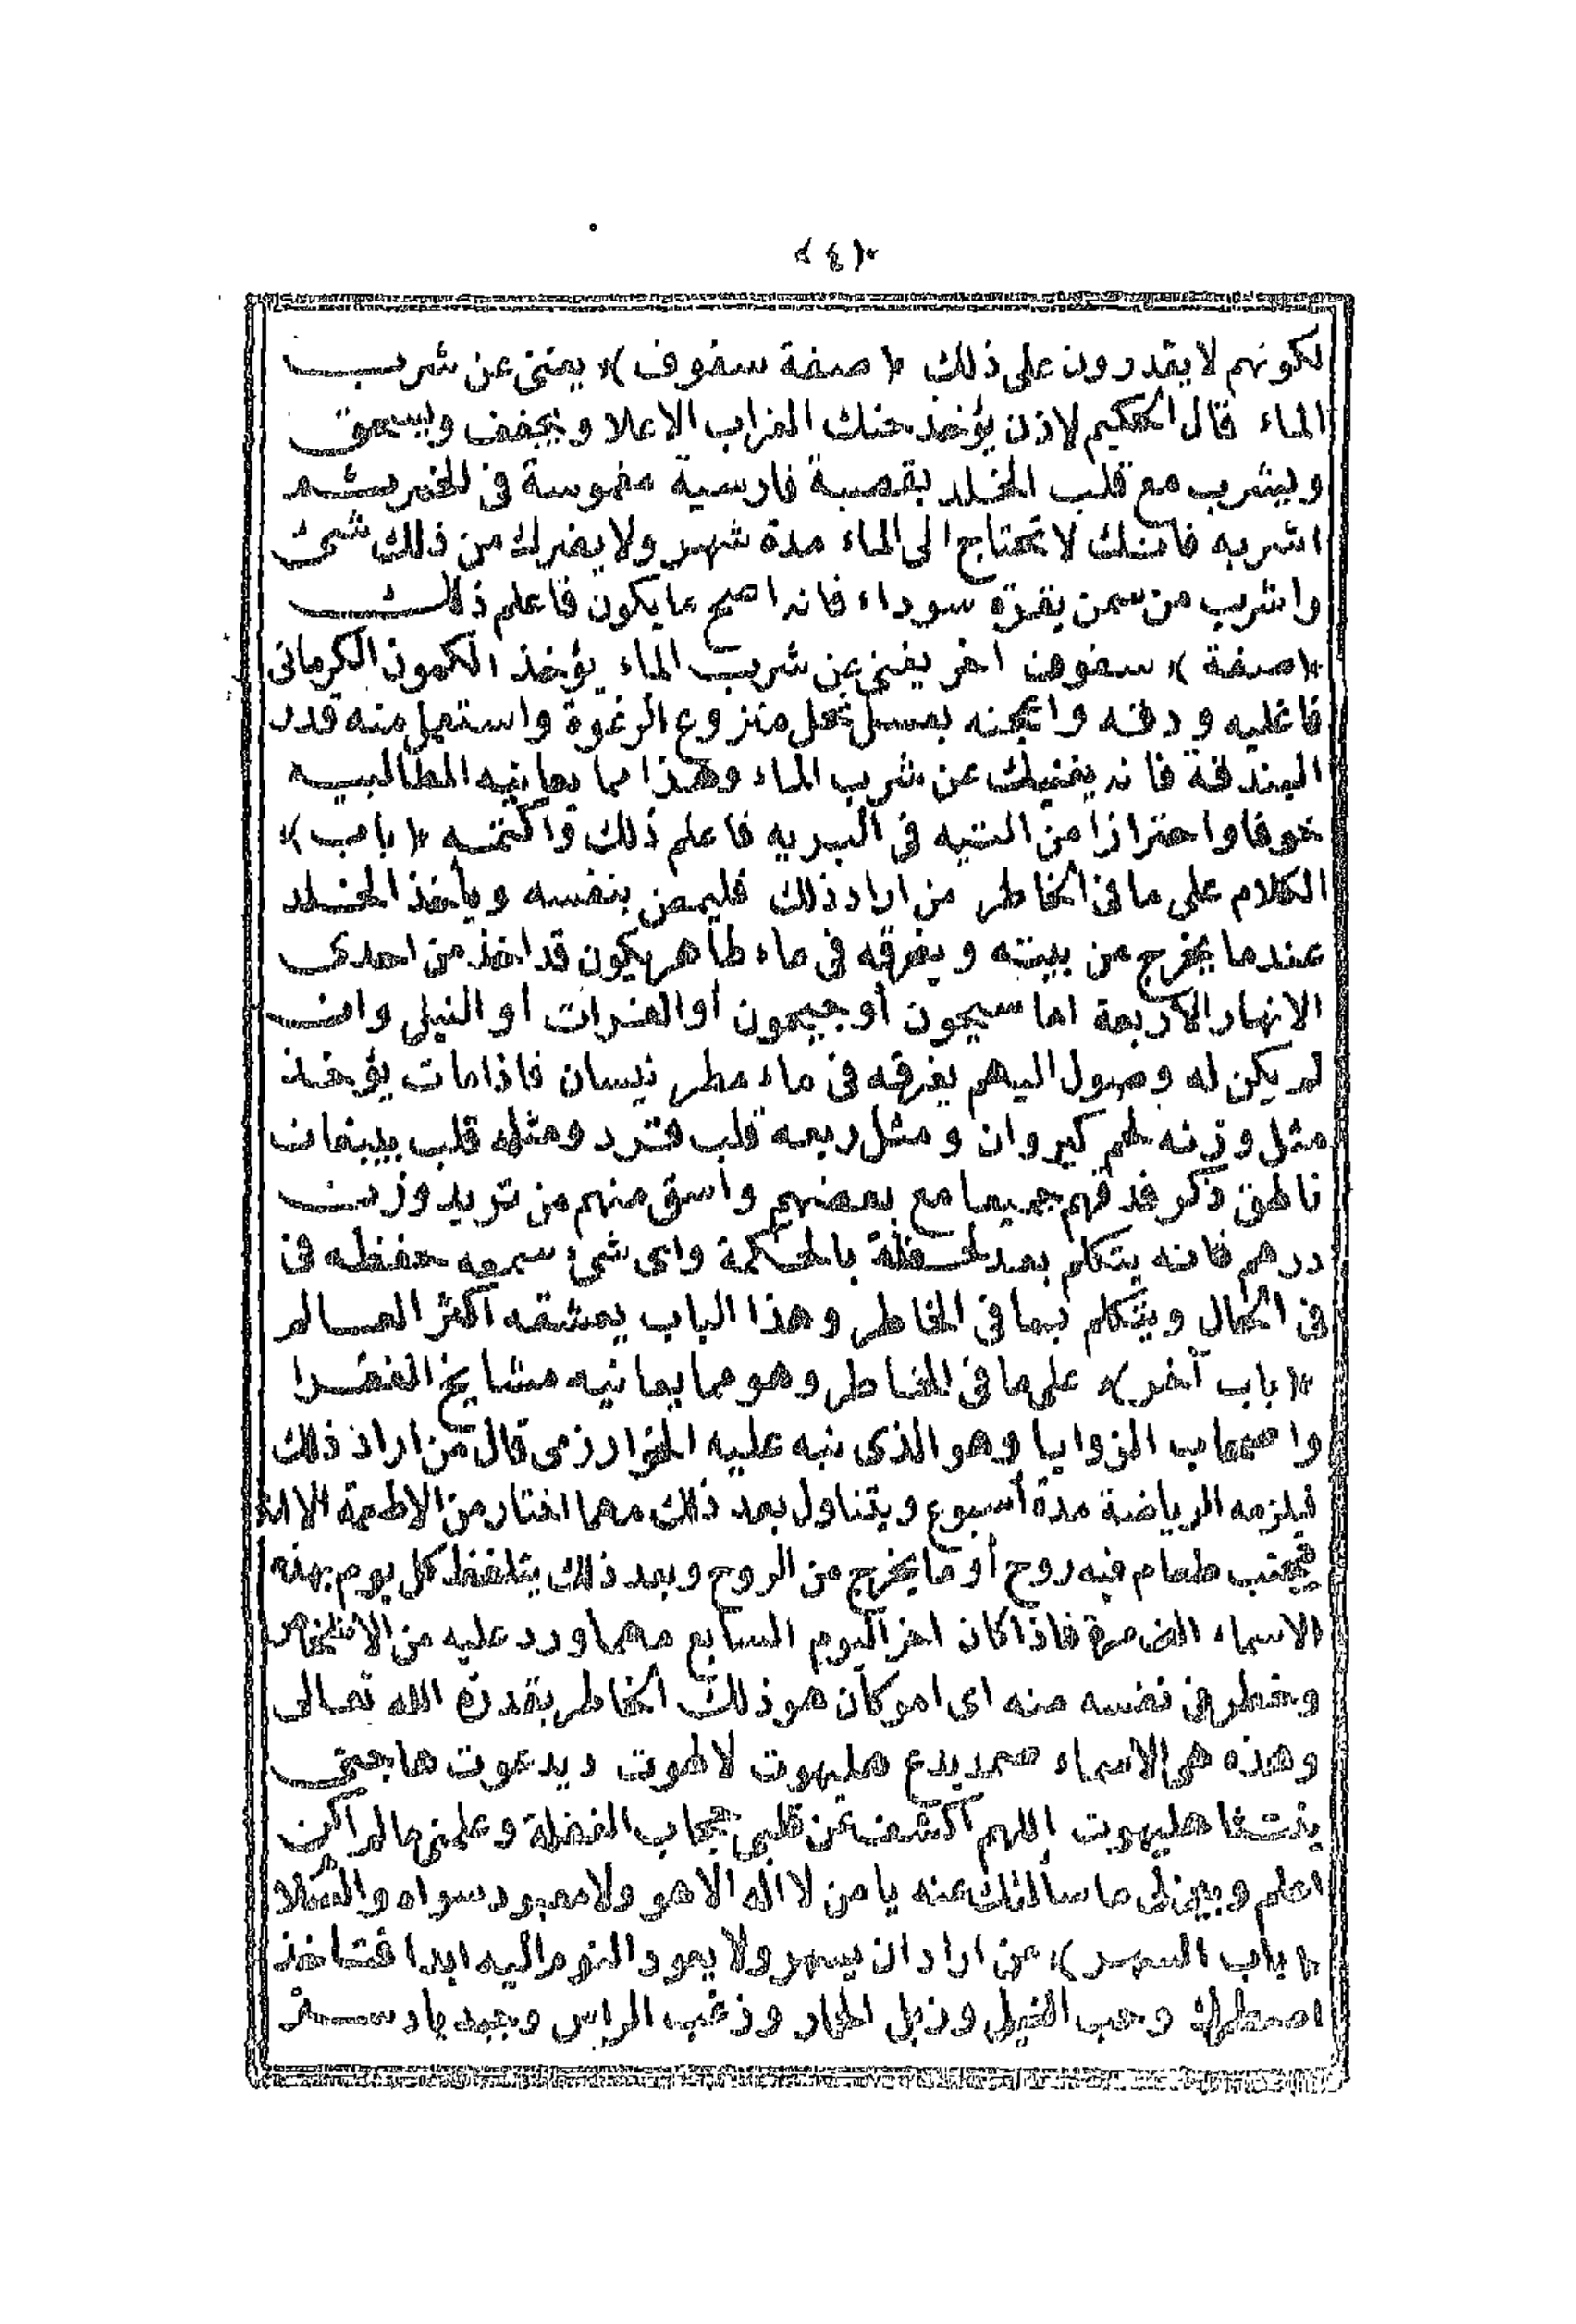 ﴿٤﴾
لكونهم لا يقدرون على ذلك ﴿صفة سفوف﴾ يغنى عن شرب
الماء قال الحكيم لاذن يؤخذ حنك الغراب الاعلا ويجفف ويسحق
ويشرب مع قلب الخلد بقصبة فارسية مغموسة فى الخمر ثم
اشربه فانك لا تحتاج الى الماء مدة شهر ولا يضرك من ذلك شئ
واشرب من سمن بقرة سوداء فانه اصح ما يكون فاعلم ذلك
﴿صفة﴾ سفوف اخر يغنى عن شرب الماء يؤخذ الكمون الكرمانى
فاغليه ودقه واعجنه بعسل نحل منزوع الرغوة واستعمل منه قدر
البندقة فانه يغنيك عن شرب الماء وهذا مما يعانيه المطالبيه
خوفا واحترازا من التيه فى البريه فاعلم ذلك واكتمه ﴿باب﴾
الكلام على ما فى الخاطر من اراد ذلك فليمض بنفسه ويأخذ الخلد
عندما يخرج من بيته ويغرقه فى ماء طاهر يكون قد اخذ من احدى
الانهار الاربعة اما سيحون أو جيحون أو الفرات أو النيل وان
لم يكن له وصول اليهم يغرقه فى ماء مطر نيسان فاذا مات يؤخذ
مثل وزنه لحم كيروان ومثل ربعه قلب قرد ومثله قلب ببغان
ناطق ذكر فدقهم جميعا مع بعضهم وأسق منهم من تريد وزن
درهم فانه يتكلم بعد لحظة بالحكمة واى شئ سمعه حفظه فى
فى الحال ويتكلم بما فى الخاطر وهذا الباب يعشقه اكثر العالم
﴿باب آخر﴾ على ما فى الخاطر وهو مما يعانيه مشايخ الفقرا
واصحاب الزوايا وهو الذى نبه عليه الخوارزمى قال من اراد ذلك
فيلزمه الرياضة مدة أسبوع ويتناول بعد ذلك مهما اختار من الاطعمة الا
يجتنب طعام فيه روح أو ما يخرج من الروح وبعد ذلك يتلفظ كل يوم بهذه
الاسماء الف مرة فاذا كان اخر اليوم السابع مهما ورد عليه من الاشخاص
وخطر فى نفسه منه اى امر كان هو ذلك الخاطر بقدرة الله تعالى
وهذه هى الاسماء صمديدع هليهوت لاطوت ديدعوت ها
هليهوت اللهم اكشف عن قلبى حجاب الغفلة وعلمنى ما لم اكن
اعلم وبين لى ما سألتك عنه يا من لا اله الا هو ولا معبود سواه
﴿باب السهر﴾ من اراد ان يسهر ولا يعود النوم اليه ابدا فتاخذ
اصطرك وحب النيل وزبل الحمار وزغب الراس